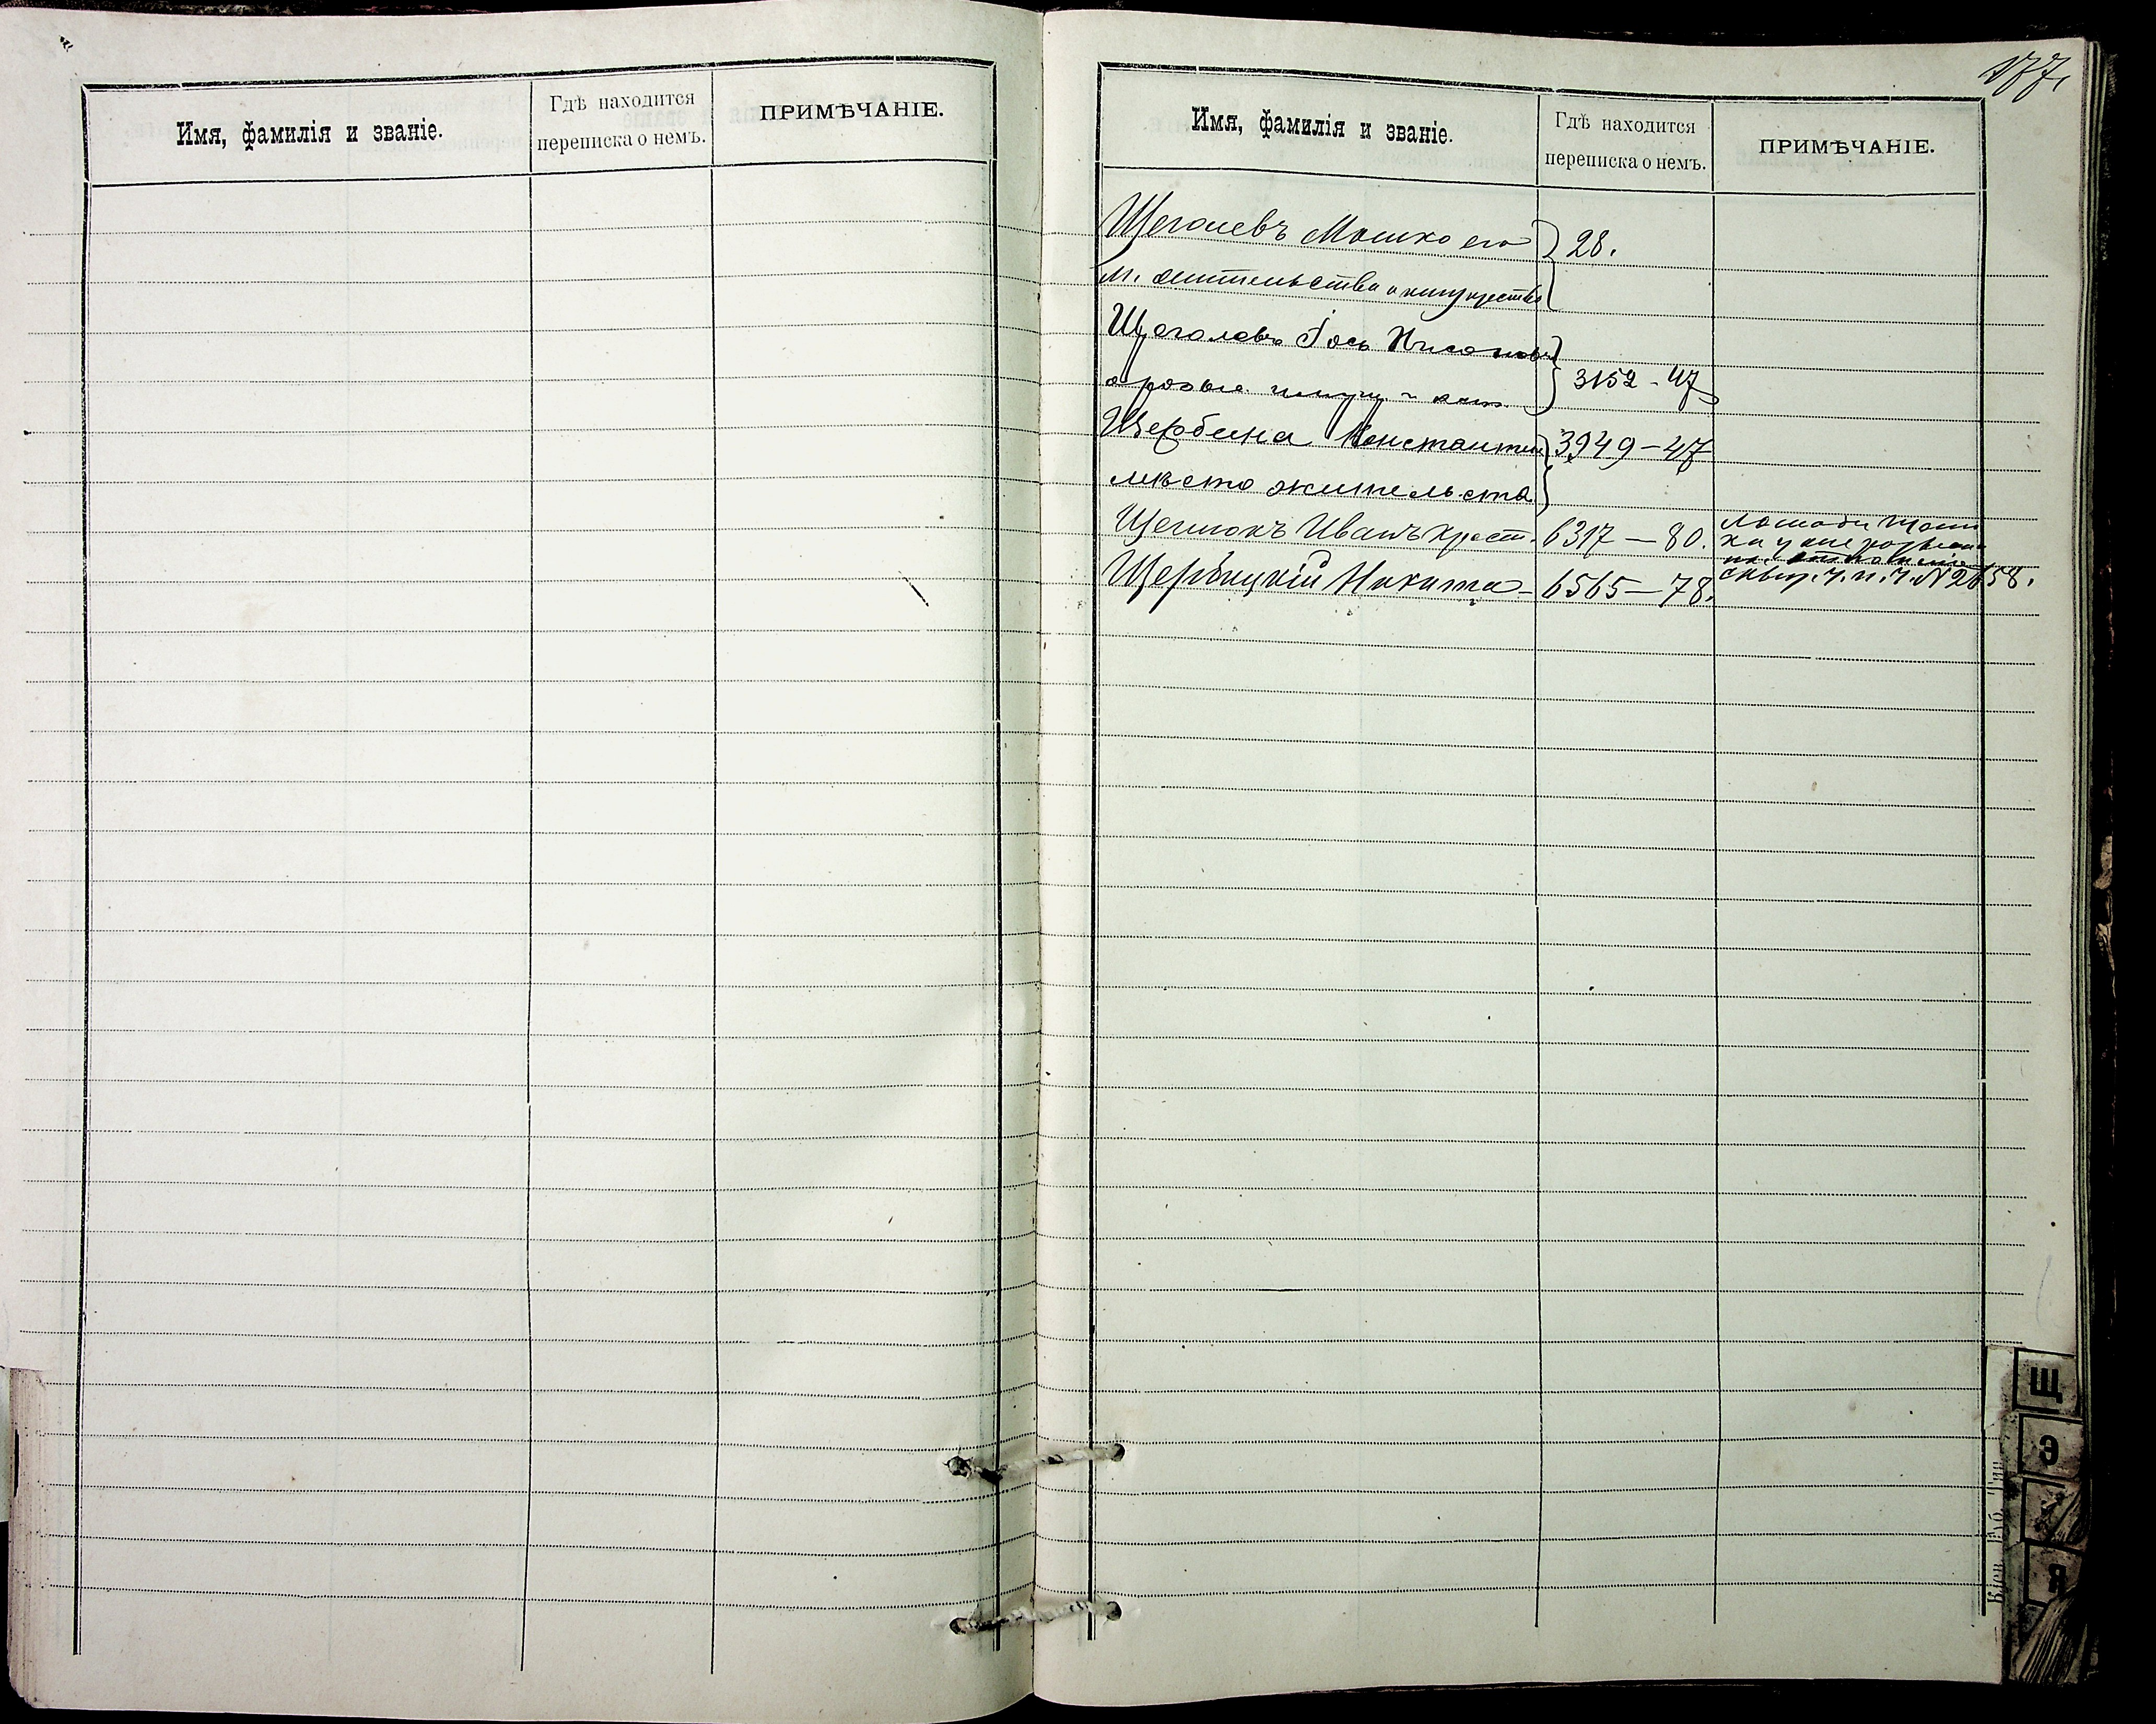 Имя, фамилія и званіе.
Гдѣ находится
переписка о немъ.
ПРИМѢЧАНІЕ.
177.
Имя, фамилія и званіе.
Гдѣ находится
переписка о немъ.
ПРИМѢЧАНІЕ.
Щеголевъ Мошко его 28.
м. жительства и имущества
Щеголевъ Іось
о розыс. имущ. 3152-47
Щербина Константинъ 3949-47
мѣсто жительства
Иванъ крест. 6317-80.
Щербицкій Никита 6565-78.
лошади
№2658.
Щ
Э
Я
Кіев. Губ. Тип.